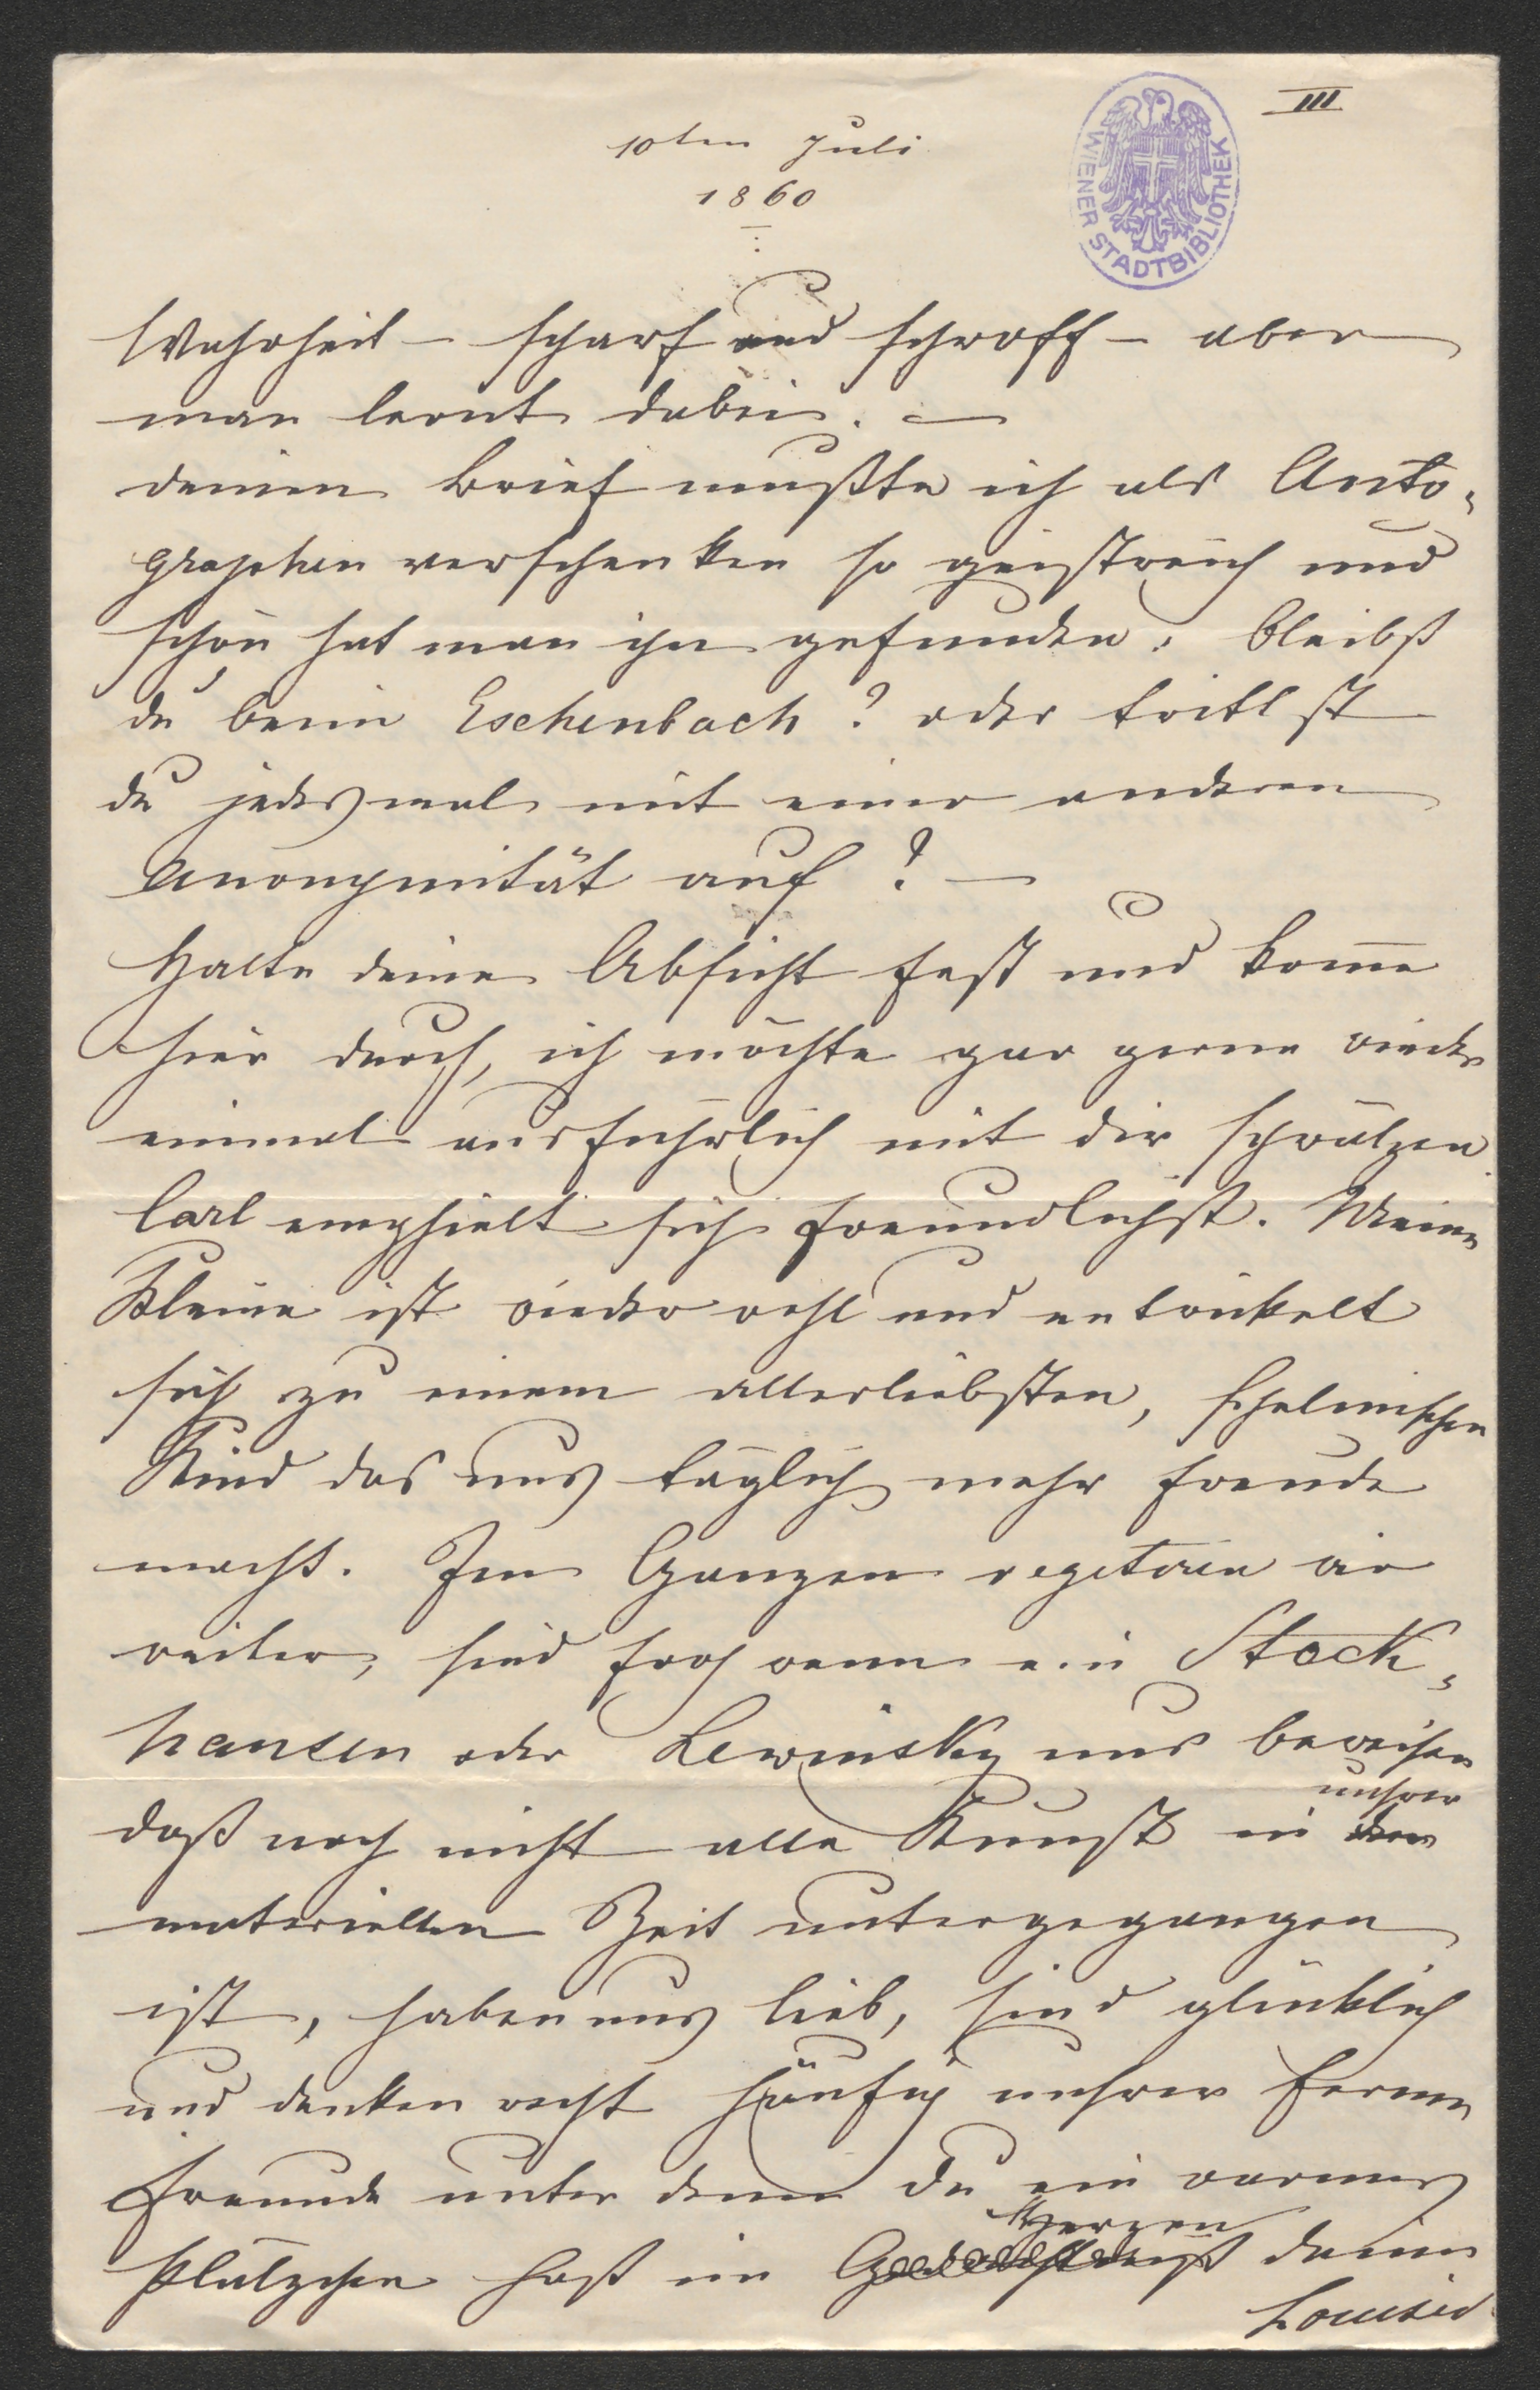 III
10ten Juli
1860
WIENER STADTBIBLIOTHEK
Wahrheit – scharf und schroff – aber
man lernt dabei. –
deinen Brief mußte ich als Auto-
graphen verschenken so geistreich und
schön hat man ihn gefunden. Bleibst
du beim Eschenbach? oder trittst
du jedesmal mit einer anderen
Anonymität auf? –
Halte deine Absicht fest und kom̄e
hier durch, ich möchte gar gerne wieder
einmal ausführlich mit dir schwätzen.
Carl empfielt sich freundlichst. Meine
Kleine ist wieder wohl und entwikelt
sich zu einem allerliebsten, schelmischen
Kind das uns täglich mehr Freude
macht. Im Ganzen vegetiren wir
weiter, sind froh wenn ein Stock-
hausen oder Lewinsky uns beweisen
unsrer
daß noch nicht alle Kunst in der
materiellen Zeit untergegangen
ist, haben uns lieb, sind glücklich
und denken recht häufig unsrer fernen
Freunde unter denen du ein warmes
Herzen
Plätzchen hast im Gedächtniß deiner
Louise